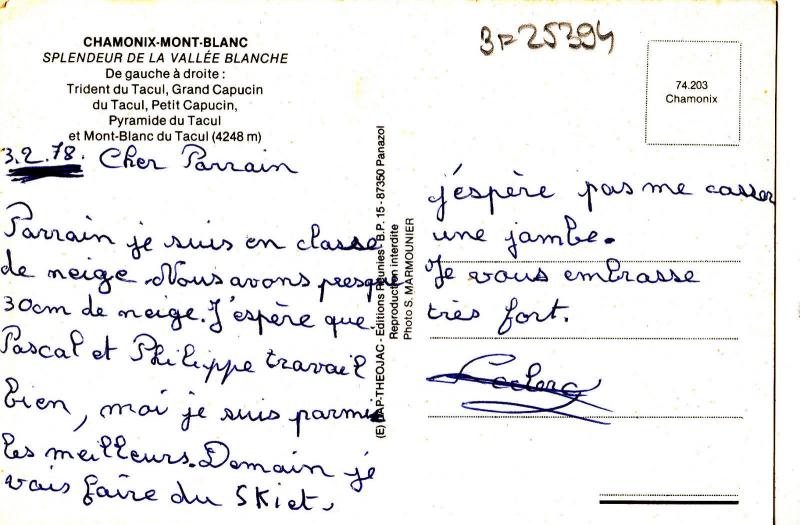 3=25394
CHAMONIX-MONT-BLANC
SPLENDEUR DE LA VALLÉE BLANCHE
De gauche à droite :
Trident du Tacul, Grand Capucin
du Tacul, Petit Capucin,
Pyramide du Tacul
et Mont-Blanc du Tacul (4248 m)
74.203
Chamonix
3.2.78. Cher Parrain
Parrain je suis en classe
de neige. Nous avons presque
30cm de neige. J'espère que
Pascal et Philippe travail
bien, moi je suis parmis
les meilleurs. Demain je
vais faire du Ski et,
j'éspère pas me casser
une jambe.
Je vous embrasse
très fort.
Leclerc
(E) RAP-THEOJAC - Editions Réunies - B.P. 15 - 87350 Panazol
Reproduction interdite
Photo S. MARMOUNIER